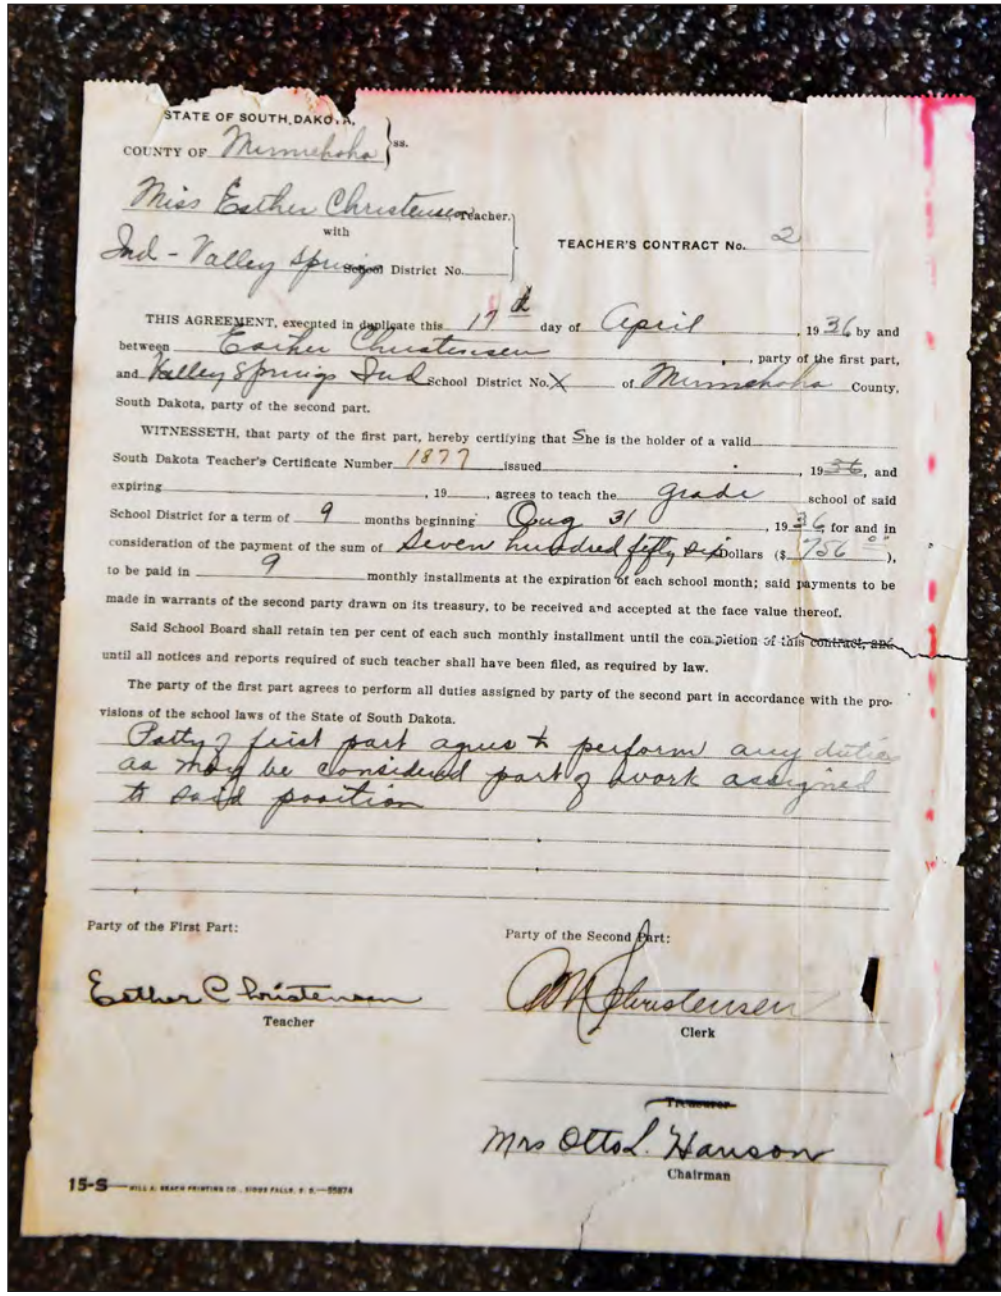 STATE OF SOUTH DAKOTA,
COUNTY OF Minnehaha } ss.
Miss Esther Christensen Teacher.
with
Ind - Valley Springs School District No.
TEACHER'S CONTRACT No. 2
THIS AGREEMENT, executed in duplicate this 17th day of April, 1936 by and
between Esther Christensen, party of the first part,
and Valley Springs Ind School District No. X of Minnehaha County,
South Dakota, party of the second part.
WITNESSETH, that party of the first part, hereby certifying that She is the holder of a valid
South Dakota Teacher's Certificate Number 1877 issued , 1936, and
expiring , 19 , agrees to teach the grade school of said
School District for a term of 9 months beginning Aug 31, 1936 for and in
consideration of the payment of the sum of Seven hundred fifty six Dollars ($ 756 00),
to be paid in 9 monthly installments at the expiration of each school month; said payments to be
made in warrants of the second party drawn on its treasury, to be received and accepted at the face value thereof.
Said School Board shall retain ten per cent of each such monthly installment until the completion of this contract, and
until all notices and reports required of such teacher shall have been filed, as required by law.
The party of the first part agrees to perform all duties assigned by party of the second part in accordance with the pro-
visions of the school laws of the State of South Dakota.
Party of first part agrees to perform any duties
as may be considered part of work assigned
to said position
Party of the First Part:
Party of the Second Part:
Esther Christensen
Teacher
Christensen
Clerk
Treasurer
Mrs Otto L. Hanson
Chairman
15-S—WILL A. BEACH PRINTING CO., SIOUX FALLS, S. D.—55874